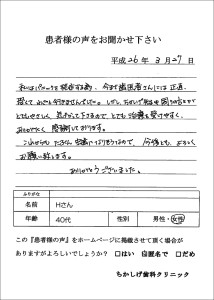 患者様の声をお聞かせ下さい
平成26年3月27日
私はパニックを経験する為、今まで歯医者さんには正直、
怖くて なかなか行きませんでした。しかし、ちかしげ先生は周りの方々が
とてもやさしく、気づかって下さるので、とても治療も受けやすく、
ありがたく 感謝しております。
これからも たくさんお世話になってしまうので、今後とも、よろしく
お願い致します。
ありがとうございました。
ふりがな
名前 Hさん
年齢 40代 性別 男性・女性
この『患者様の声』をホームページに掲載させて頂く場合が
ありますがよろしいでしょうか? □はい ☑匿名で □だめ
ちかしげ歯科クリニック